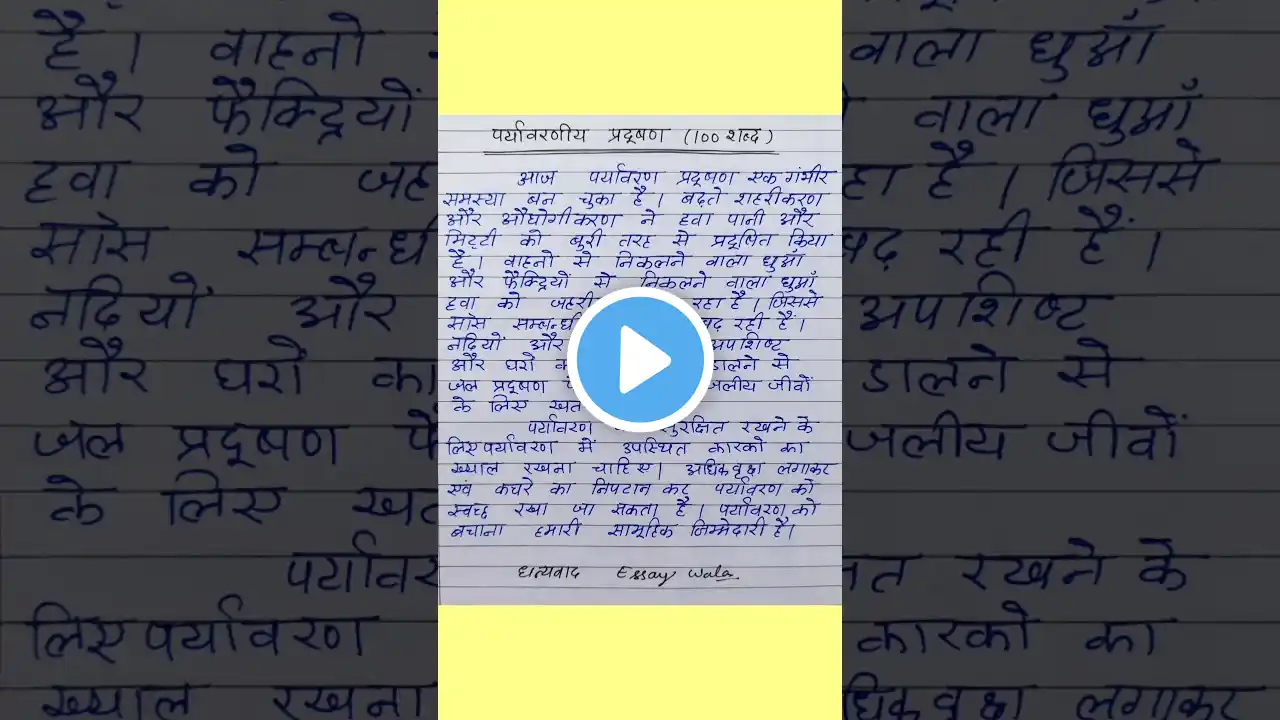 पर्यावरणीय प्रदूषण (100 शब्द)
आज पर्यावरण प्रदूषण एक गंभीर
समस्या बन चुका है। बढ़ते शहरीकरण
और औद्योगीकरण ने हवा पानी और
मिट्टी को बुरी तरह से प्रदूषित किया
है। वाहनो से निकलने वाला धुआँ
और फैक्ट्रियों से निकलने वाला धुआँ
हवा को जहरी रहा है। जिससे
सांस सम्बन्धी बढ़ रही हैं।
नदियों और अपशिष्ट
और घरों डालने से
जल प्रदूषण जलीय जीवों
के लिए
पर्यावरण सुरक्षित रखने के
लिए पर्यावरण में उपस्थित कारको का
ख्याल रखना चाहिए। अधिक वृक्ष लगाकर
एवं कचरे का निपटान कर पर्यावरण को
स्वच्छ रखा जा सकता है। पर्यावरण को
बचाना हमारी सामूहिक जिम्मेदारी है।
धन्यवाद Essay Wala